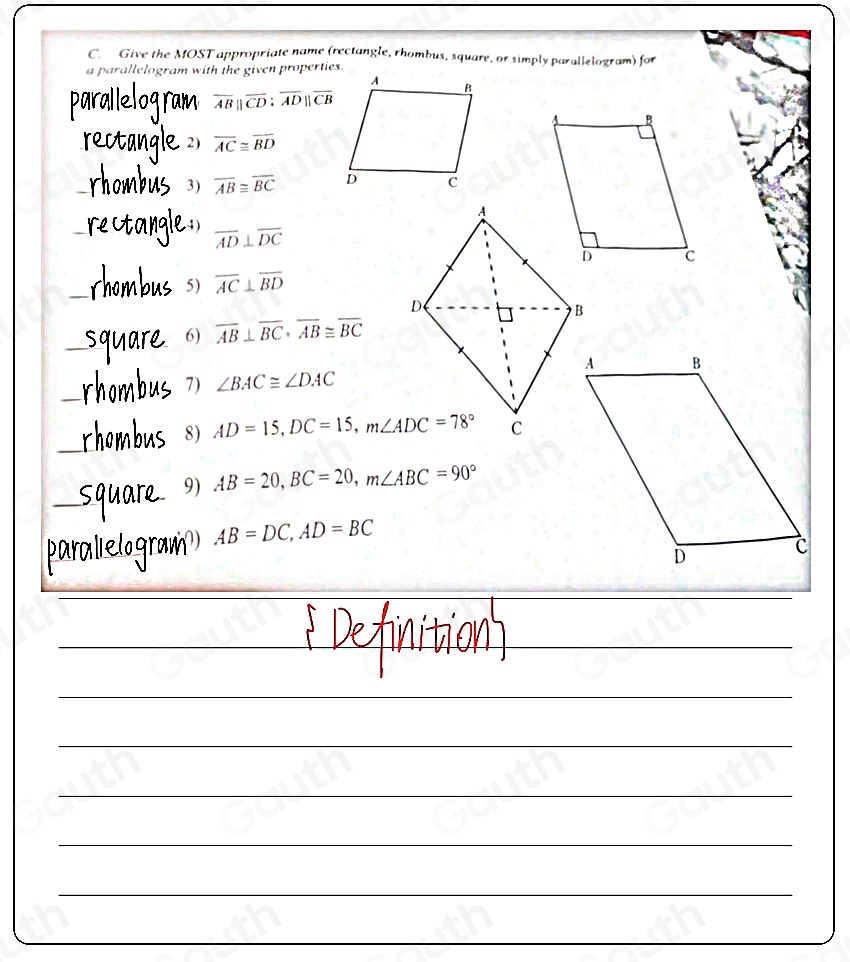 C. Give the MOST appropriate name (rectangle, rhombus, square, or simply parallelogram) for
a parallelogram with the given properties.
parallelogram AB || CD ; AD || CB
rectangle 2) AC ≅ BD
rhombus 3) AB ≅ BC
rectangle 4) AD ⊥ DC
rhombus 5) AC ⊥ BD
square 6) AB ⊥ BC, AB ≅ BC
rhombus 7) ∠BAC ≅ ∠DAC
rhombus 8) AD = 15, DC = 15, m∠ADC = 78°
square 9) AB = 20, BC = 20, m∠ABC = 90°
parallelogram 0) AB = DC, AD = BC
A B
D C
A B
D C
A
D B
C
A B
D C
{Definition}
Gauth